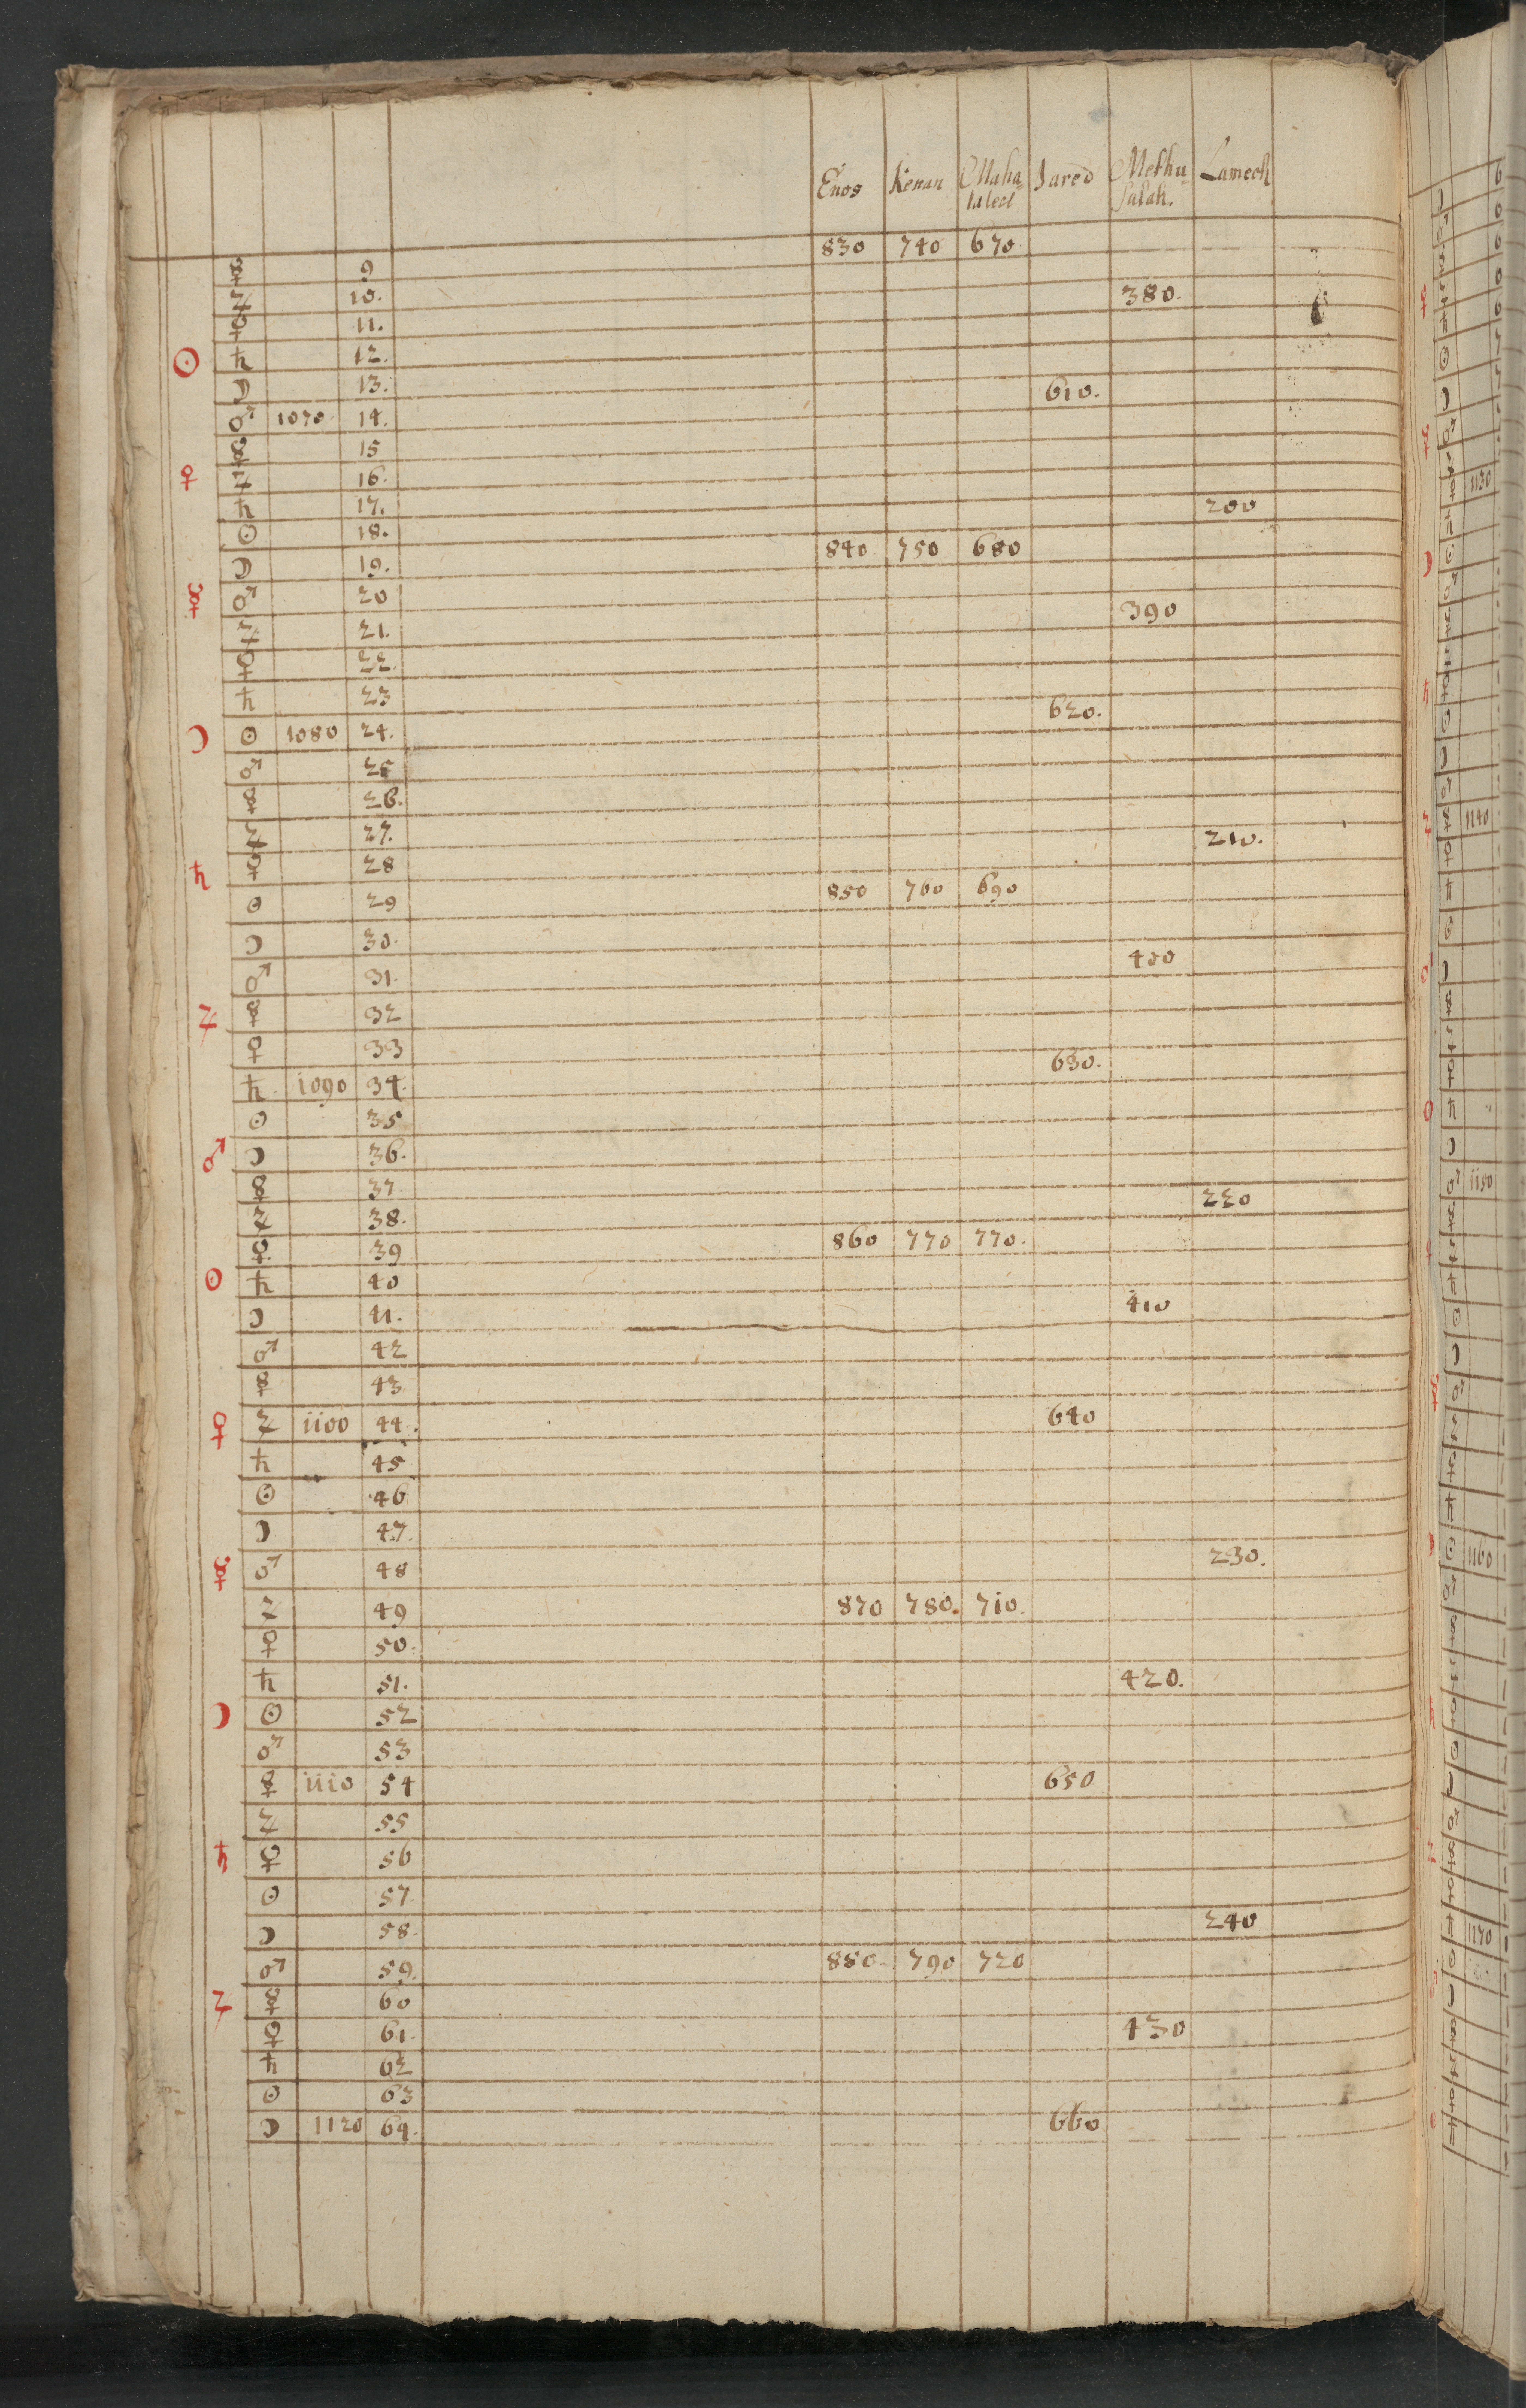 Enos Kenan Maha= Jared Methu Lamech
laleel salah.
830 740 670
☿ 9
♃ 10. 380.
♀ 11.
☉ ♄ 12.
☽ 13. 610.
♂ 1070 14.
☿ 15
♀ ♃ 16.
♄ 17. 200
☉ 18.
☽ 19. 840 750 680
☿ ♂ 20 390
♃ 21.
♀ 22.
♄ 23 620.
☽ ☉ 1080 24.
♂ 25
☿ 26.
♃ 27. 210.
♄ ♀ 28
☉ 29 850 760 690
☽ 30.
♂ 31. 400
♃ ☿ 32
♀ 33 630.
♄ 1090 34.
☉ 35
♂ ☽ 36.
☿ 37. 220
♃ 38.
♀ 39 860 770 770.
☉ ♄ 40
☽ 41. 410
♂ 42
☿ 43
♀ ♃ 1100 44. 640
♄ 45
☉ 46
☽ 47.
☿ ♂ 48 230.
♃ 49 870 780. 710.
♀ 50.
♄ 51. 420.
☽ ☉ 52
♂ 53
☿ 1110 54 650
♃ 55
♄ ♀ 56
☉ 57
☽ 58. 240
♂ 59. 880. 790 720
♃ ☿ 60
♀ 61. 430
♄ 62
☉ 63
☽ 1120 64. 660
1130
1140
1150
1160
1170